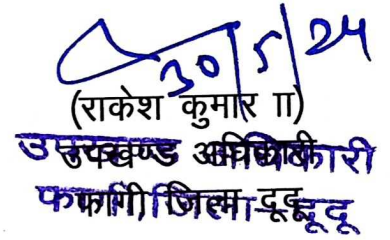 30/5/24
(राकेश कुमार II)
उपखण्ड अधिकारी
फागी, जिला दूदू